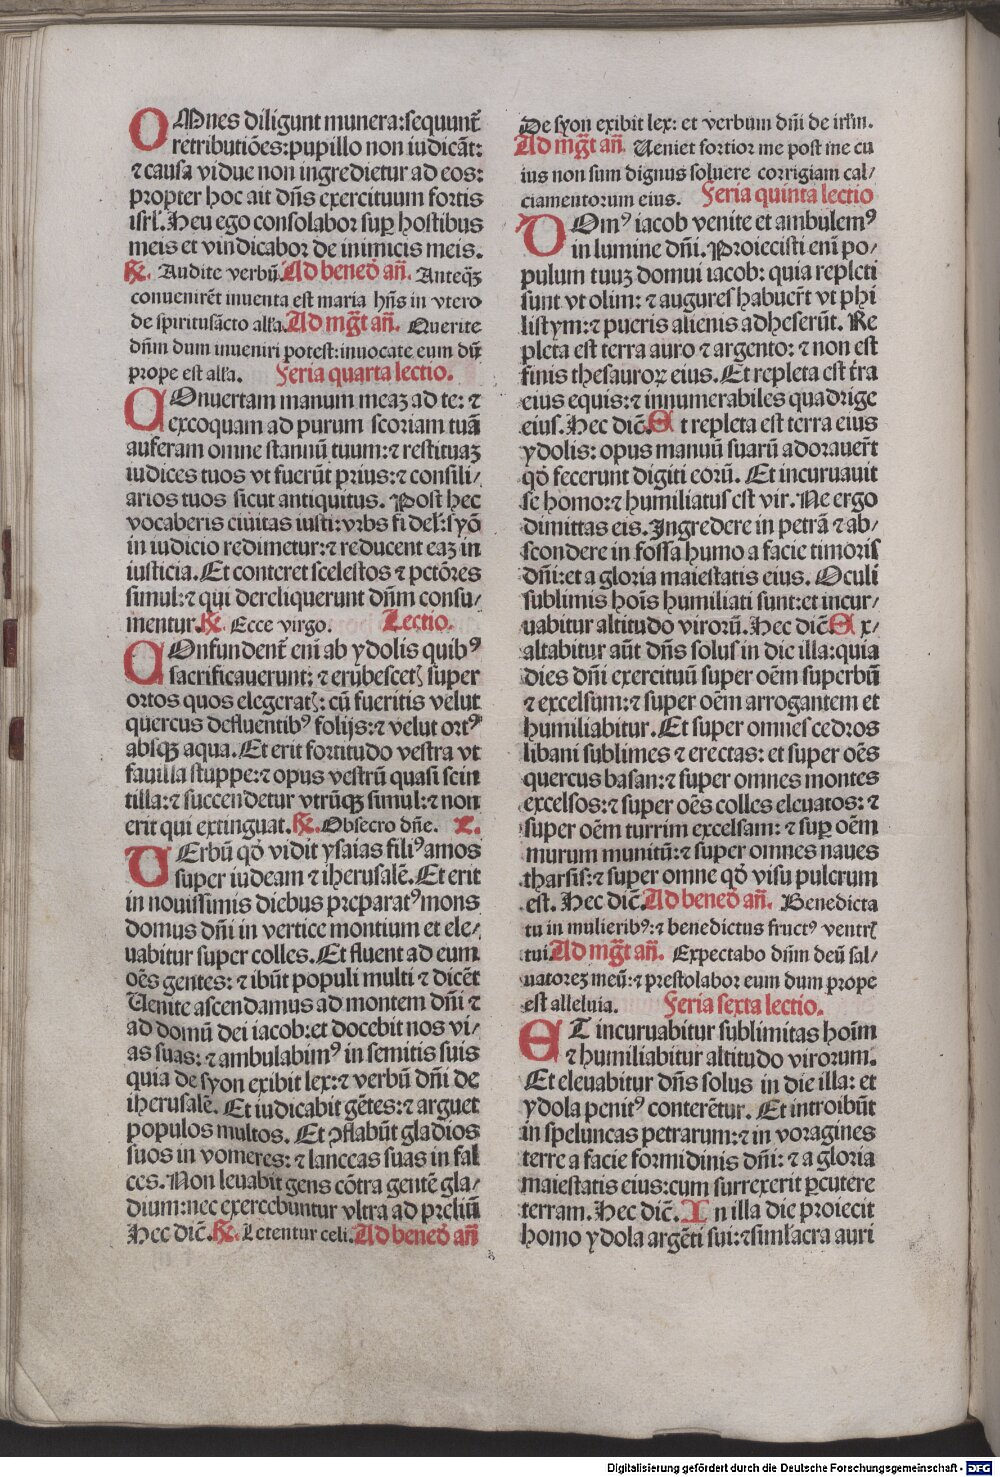 OMnes diligunt munera:sequunt᷑
retributiões:pupillo non iudicãt:
⁊ causa vidue non ingredietur ad eos:
propter hoc ait dñs exercituum fortis
isrł. Heu ego consolabor suꝑ hostibus
meis et vindicabor de inimicis meis.
℞. Audite verbũ. Ad bened̃ añ. Anteq̃ꝫ
convenirẽt inuenta est maria hñs in vtero
de spiritusãcto alľa. Ad mg̃t añ. Querite
dñm dum inueniri potest:inuocate eum dũ
prope est alľa. Feria quarta lectio.
COnuertam manum meaꝫ ad te: ⁊
excoquam ad purum scoriam tuã
auferam omne stannũ tuum:⁊ restituaꝫ
iudices tuos vt fuerũt prius:⁊ consili/
arios tuos sicut antiquitus. Post hec
vocaberis ciuitas iusti:vrbs fideľ:syõ
in iudicio redimetur:⁊ reducent eaꝫ in
iusticia. Et conteret scelestos ⁊ pctõres
simul:⁊ qui dereliquerunt dñm consu/
mentur. ℞. Ecce virgo. Lectio.
COnfundent᷑ eñi ab ydolis quibꝰ
sacrificauerunt: ⁊ erubescetꝭ super
ortos quos elegeratꝭ: cũ fueritis velut
quercus defluentibꝰ folijs:⁊ velut ortꝰ
absqꝫ aqua. Et erit fortitudo vestra vt
fauilla stuppe:⁊ opus vestrũ quasi scin
tilla:⁊ succendetur vtrũqꝫ simul:⁊ non
erit qui extinguat. ℞. Obsecro dñe. L.
VErbũ qđ vidit ysaias filiꝰ amos
super iudeam ⁊ iherusalẽ. Et erit
in nouissimis diebus preparatꝰ mons
domus dñi in vertice montium et ele/
uabitur super colles. Et fluent ad eum
oẽs gentes: ⁊ ibũt populi multi ⁊ dicẽt
Uenite ascendamus ad montem dñi ⁊
ad domũ dei iacob:et docebit nos vi/
as suas: ⁊ ambulabimꝰ in semitis suis
quia de syon exibit lex:⁊ verbũ dñi de
iherusalẽ. Et iudicabit gẽtes:⁊ arguet
populos multos. Et ꝯflabũt gladios
suos in vomeres: ⁊ lanceas suas in fal
ces. Non leuabit gens cõtra gentẽ gla/
dium:nec exercebuntur vltra ad preliũ
Hec dic̃. ℞. Letentur celi. Ad bened̃ añ
De syon exibit lex: et verbum dñi de irľm.
Ad mg̃t añ Ueniet fortior me post me cu
ius non sum dignus soluere corrigiam cal/
ciamentorum eius. Feria quinta lectio
DOmꝰ iacob venite et ambulemꝰ
in lumine dñi. Proiecisti eñi po/
pulum tuuꝫ domui iacob: quia repleti
sunt vt olim: ⁊ augures habuer̃t vt phi
listym:⁊ pueris alienis adheserũt. Re
pleta est terra auro ⁊ argento: ⁊ non est
finis thesauroꝝ eius. Et repleta est t̃ra
eius equis:⁊ innumerabiles quadrige
eius. Hec dic̃. Et repleta est terra eius
ydolis: opus manuũ suarũ adorauer̃t
qđ fecerunt digiti eorũ. Et incuruauit
se homo:⁊ humiliatus est vir. Ne ergo
dimittas eis. Ingredere in petrã ⁊ ab/
scondere in fossa humo a facie timoris
dñi:et a gloria maiestatis eius. Oculi
sublimis hoĩs humiliati sunt:et incur/
uabitur altitudo virorũ. Hec dic̃. Ex/
altabitur aũt dñs solus in die illa:quia
dies dñi exercituũ super oẽm superbũ
⁊ excelsum:⁊ super oẽm arrogantem et
humiliabitur. Et super omnes cedros
libani sublimes ⁊ erectas: et super oẽs
quercus basan:⁊ super omnes montes
excelsos:⁊ super oẽs colles eleuatos: ⁊
super oẽm turrim excelsam: ⁊ suꝑ oẽm
murum munitũ:⁊ super omnes naues
tharsis:⁊ super omne qđ visu pulcrum
est. Hec dic̃. Ad bened̃ añ. Benedicta
tu in mulieribꝰ:⁊ benedictus fructꝰ ventrꝭ
tui. Ad mg̃t añ. Expectabo dñm deũ sal/
uatoreꝫ meũ:⁊ prestolabor eum dum prope
est alleluia. Feria sexta lectio.
ET incuruabitur sublimitas hoĩm
⁊ humiliabitur altitudo virorum.
Et eleuabitur dñs solus in die illa: et
ydola penitꝰ conterẽtur. Et introibũt
in speluncas petrarum:⁊ in voragines
terre a facie formidinis dñi: ⁊ a gloria
maiestatis eius:cum surrexerit ꝑcutere
terram. Hec dic̃. In illa die proiecit
homo ydola argẽti sui:⁊ simľacra auri
Digitalisierung gefördert durch die Deutsche Forschungsgemeinschaft - DFG